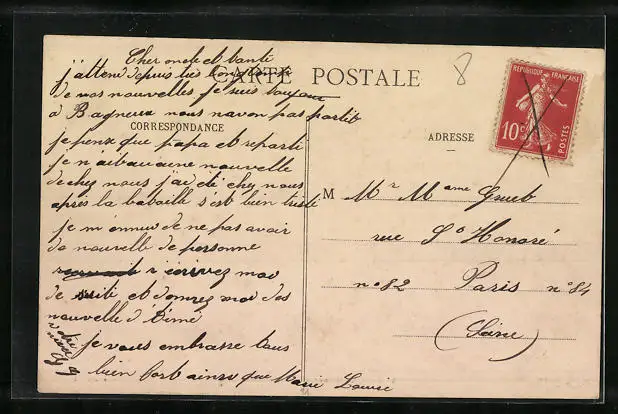 Cher oncle et tante
j'attend depuis très longtemps
de vos nouvelles je suis toujours
a Bagneux nous navon pas partit
je peux que papa et reparti
je n'ai aucune nouvelle
de chez nous j'ai été chez nous
après la bataille s'est bien triste
je m'ennui de ne pas avoir
de nouvelle de personne
récrivez moi
de suite et donnez moi des
nouvelle d'Aimé
je vous embrasse tous
bien fort ainsi que Marie Louise
votre
CARTE POSTALE
CORRESPONDANCE
ADRESSE
8
REPUBLIQUE FRANÇAISE
10c
POSTES
M Mr Mme
rue St Honoré
n°82 Paris n°84
(Seine)